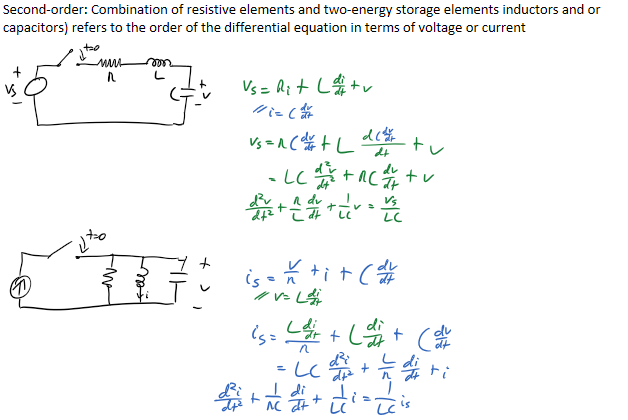 Second-order: Combination of resistive elements and two-energy storage elements inductors and or
capacitors) refers to the order of the differential equation in terms of voltage or current
t=0
+
R
L
+
Vs
C
v
-
-
Vs = Ri + L di/dt + v
// i = C dv/dt
Vs = RC dv/dt + L d(C dv/dt)/dt + v
= LC d²v/dt² + RC dv/dt + v
d²v/dt² + R/L dv/dt + 1/LC v = Vs/LC
t=0
+
i
v
-
is = v/R + i + C dv/dt
// v = L di/dt
is = L di/dt / R + L di/dt + C dv/dt
= LC d²i/dt² + L/R di/dt + i
d²i/dt² + 1/RC di/dt + 1/LC i = 1/LC is